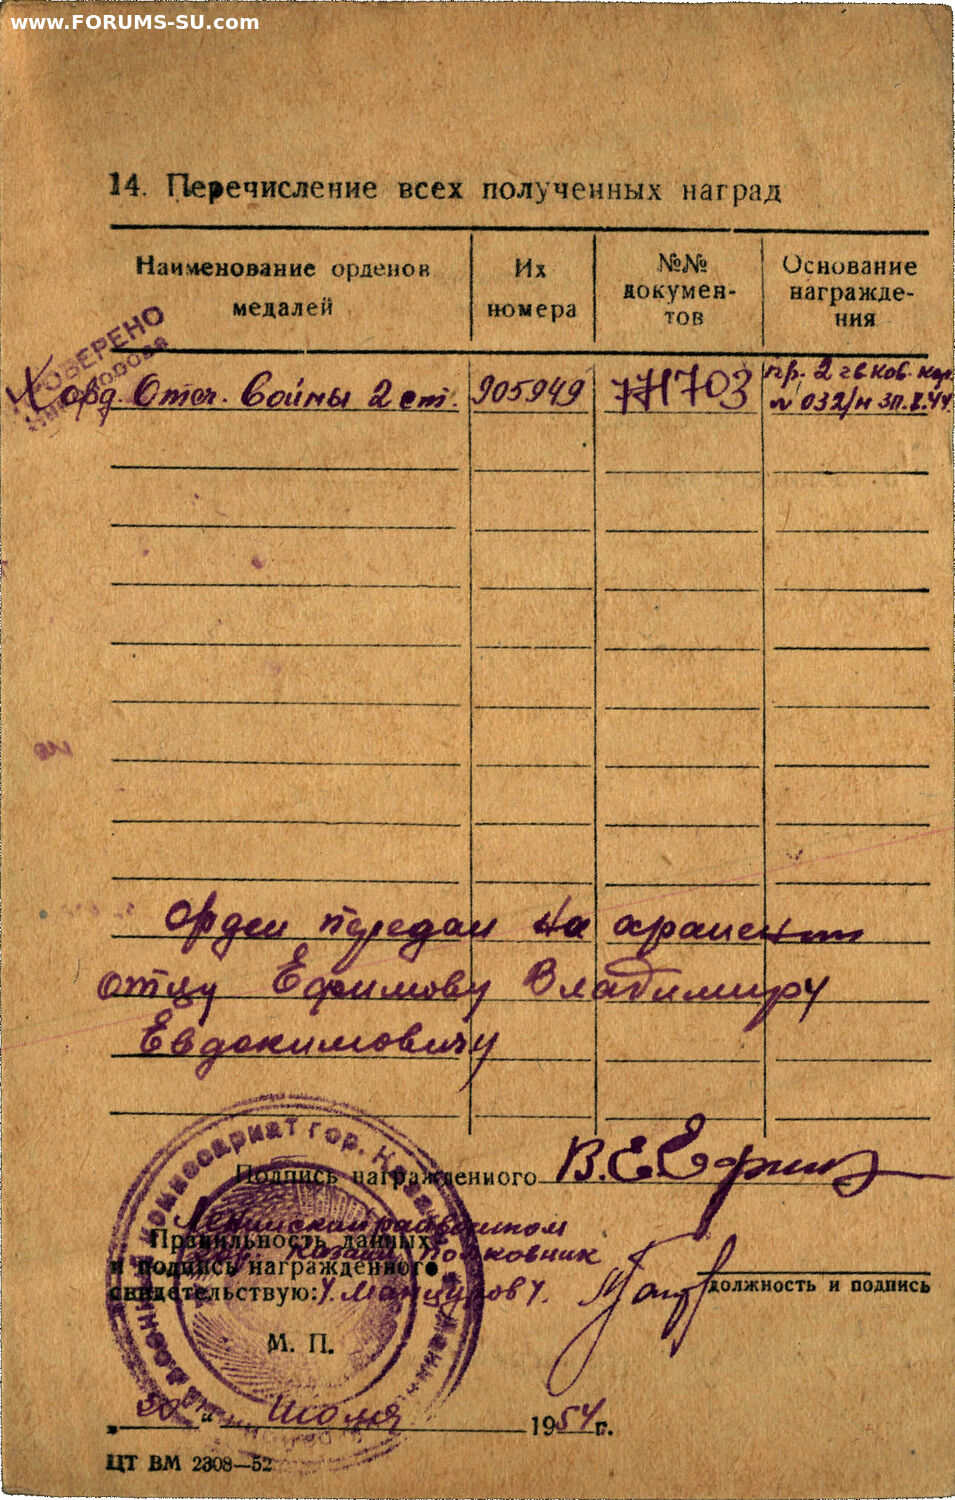 www.FORUMS-SU.com
14. Перечисление всех полученных наград
Наименование орденов медалей
Их номера
№№ докумен-тов
Основание награжде-ния
ПРОВЕРЕНО
орд. Отеч. войны 2 ст. 905949 703 пр. 2 гв. кав. кор.
№ 032/н
Орден передан на хранение
отцу Ефимову Владимиру
Евдокимовичу
Подпись награжденного В.Е.Ефимов
Ленинский райвоенком
Правильность данных
гор. Казани Полковник
и подпись награжденного
свидетельствую: Мансуров
должность и подпись
М. П.
комиссариат гор.
30 " июля 1954 г.
ЦТ ВМ 2308—52